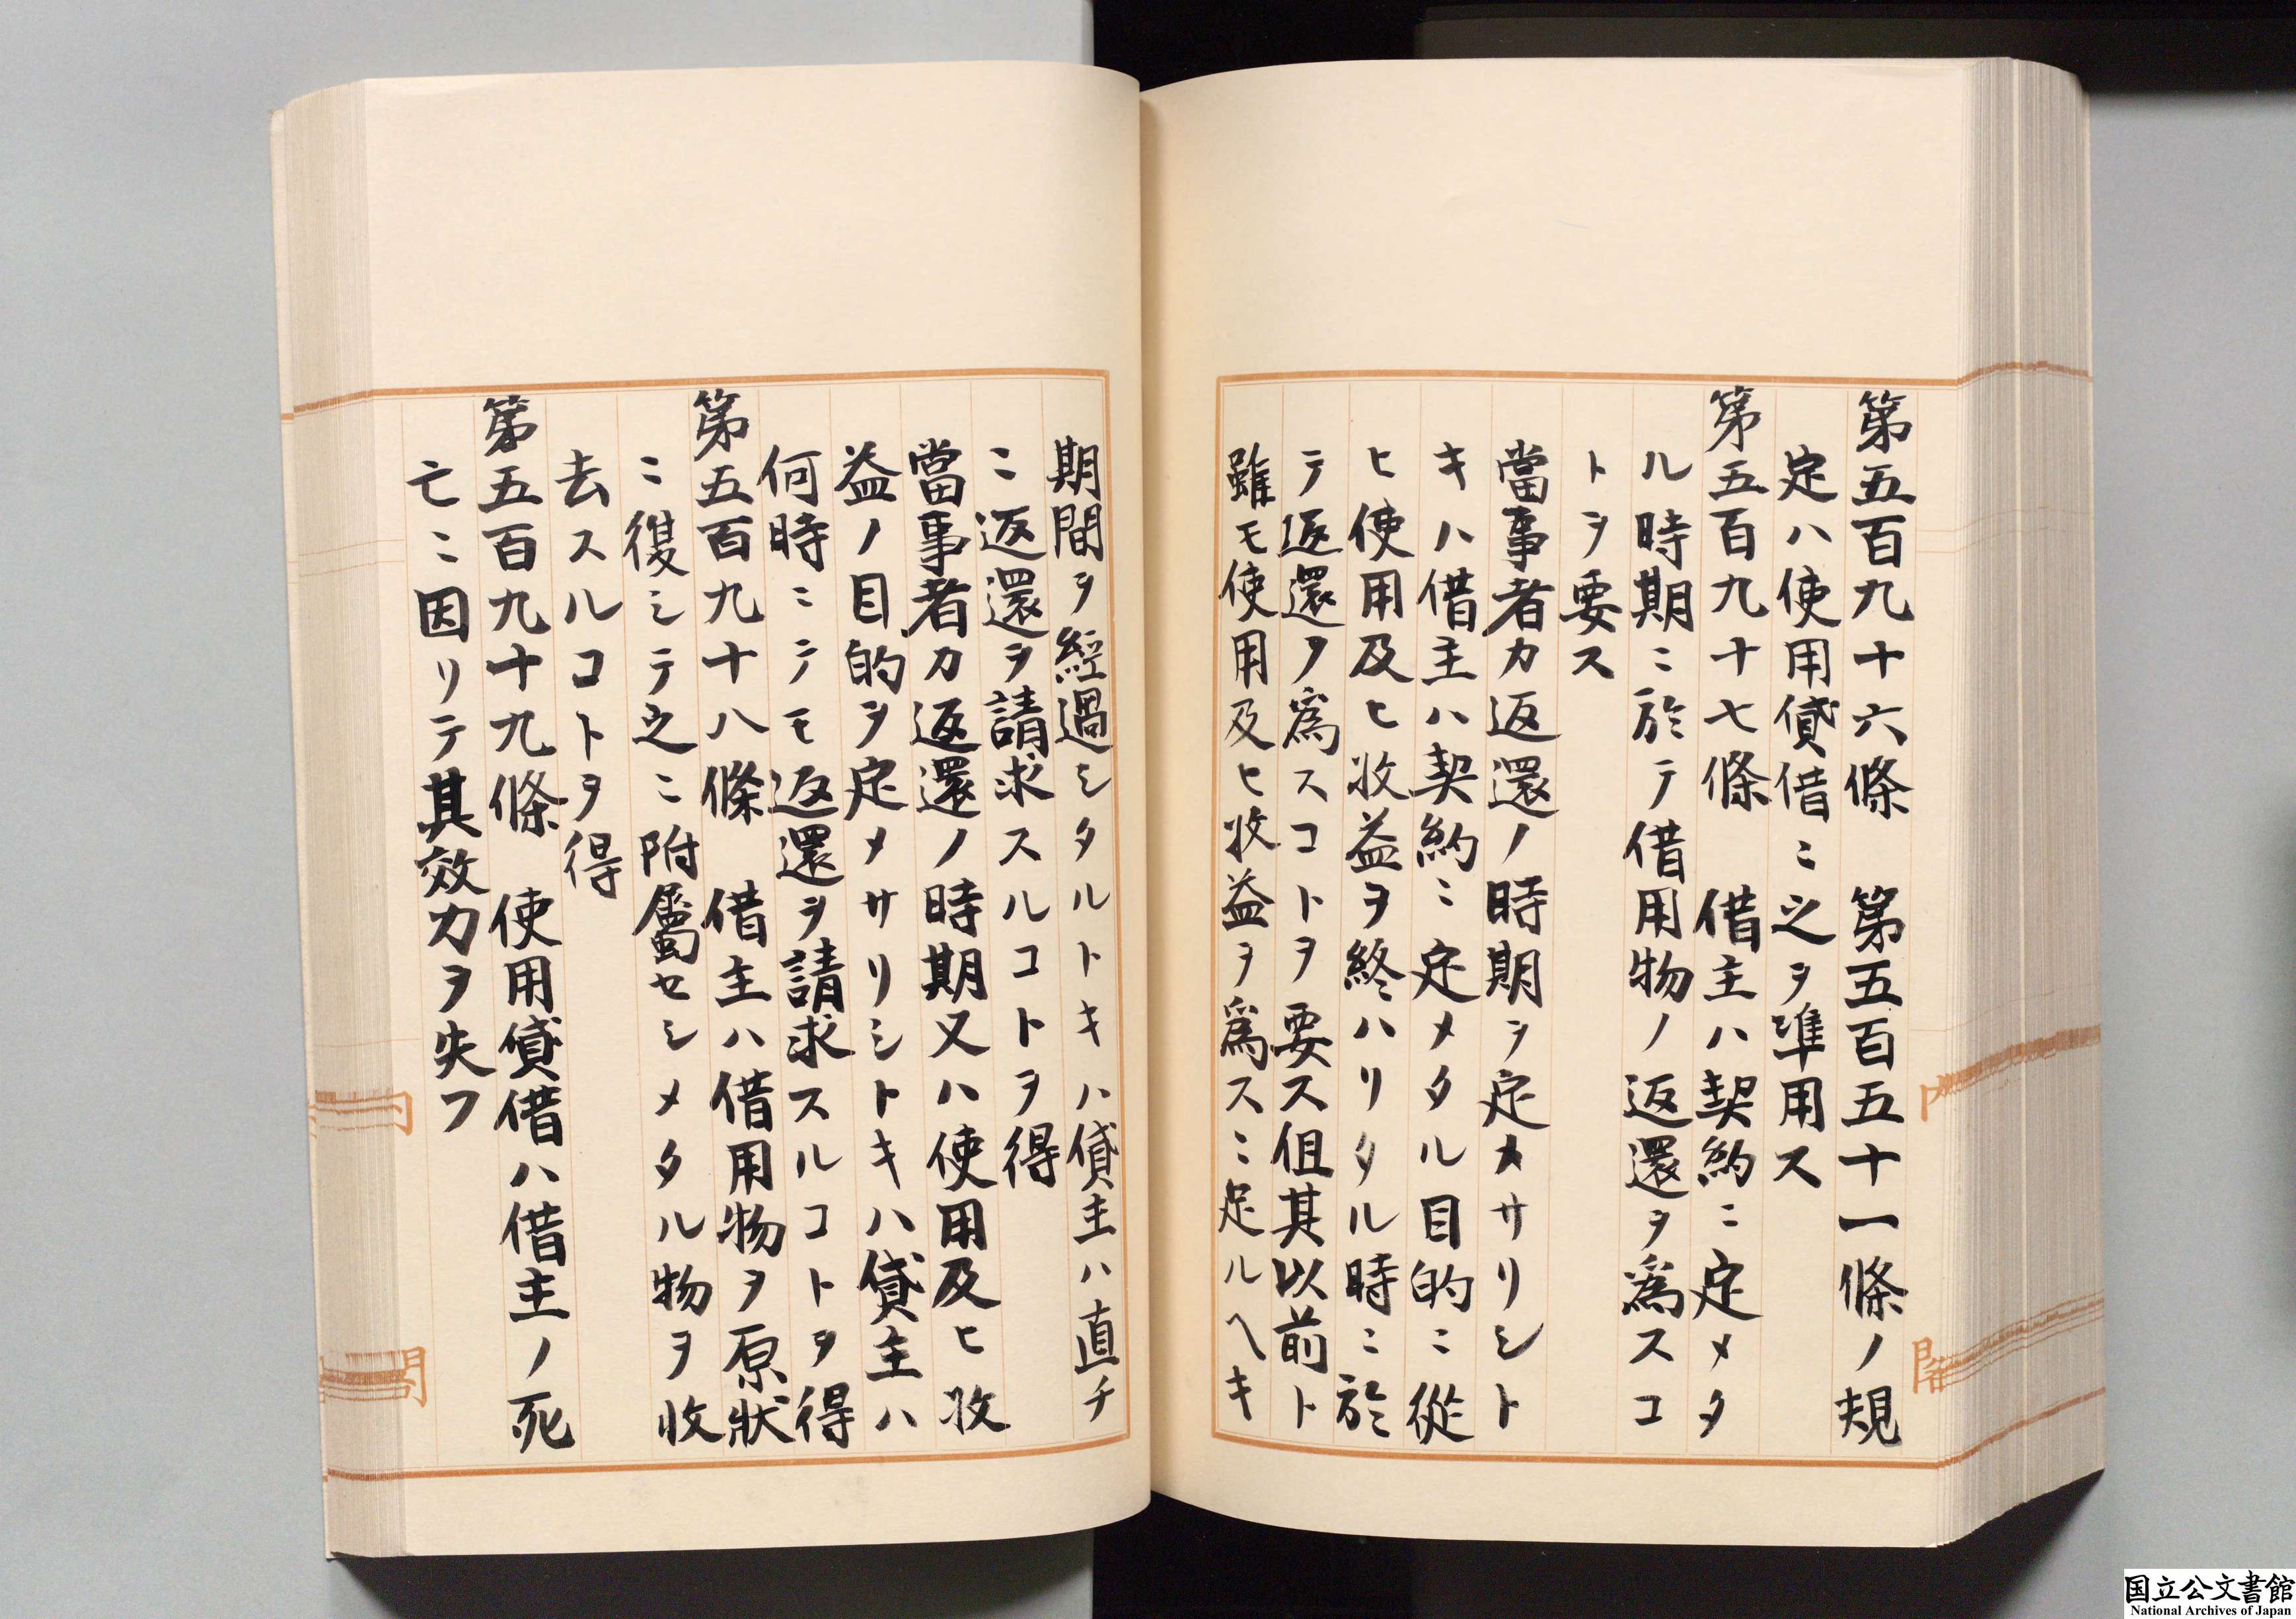 第五百九十六條　第五百五十一條ノ規
定ハ使用貸借ニ之ヲ準用ス
第五百九十七條　借主ハ契約ニ定メタ
ル時期ニ於テ借用物ノ返還ヲ爲スコ
トヲ要ス
當事者カ返還ノ時期ヲ定メサリシト
キハ借主ハ契約ニ定メタル目的ニ從
ヒ使用及ヒ收益ヲ終ハリタル時ニ於
テ返還ヲ爲スコトヲ要ス但其以前ト
雖モ使用及ヒ收益ヲ爲スニ足ルヘキ
期間ヲ經過シタルトキハ貸主ハ直チ
ニ返還ヲ請求スルコトヲ得
當事者カ返還ノ時期又ハ使用及ヒ收
益ノ目的ヲ定メサリシトキハ貸主ハ
何時ニテモ返還ヲ請求スルコトヲ得
第五百九十八條　借主ハ借用物ヲ原狀
ニ復シテ之ニ附屬セシメタル物ヲ收
去スルコトヲ得
第五百九十九條　使用貸借ハ借主ノ死
亡ニ因リテ其效力ヲ失フ
内
閣
国立公文書館
National Archives of Japan